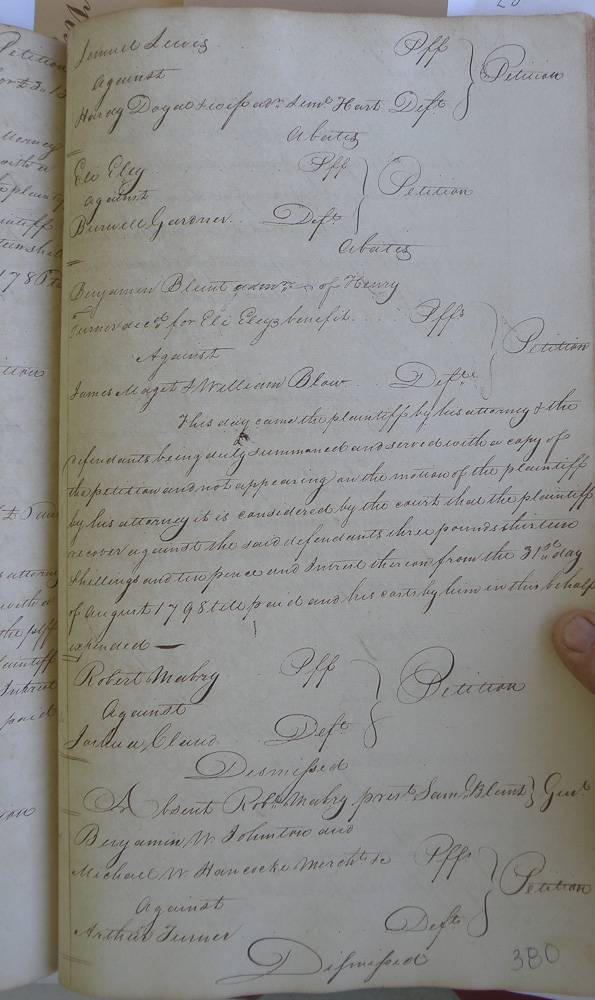 Samuel Lewis Pff
against } Petition
Hardy Doyal & wife adx Seml Hart Deft
Abates
Eli Eley Pff
against } Petition
Burwell Gardner Deft
Abates
Benjamin Blunt admr of Henry
Turner decd for Eli Eleys benefit Pffs
Against } Petition
James Maget & William Blow Defts
This day came the plaintiff by his attorney & the
defendants being duly summoned and served with a copy of
the petition and not appearing on the motion of the plaintiff
by his attorney it is considered by the court that the plaintiff
recover against the said defendants three pounds thirteen
shillings and ten pence and Intrest thereon from the 31st day
of August 1798 till paid and his costs by him in this behalf
expended
Robert Mabry Pff
Against } Petition
Joshua Claud Deft
Desmissed
Absent Robt Mabry prest Saml Blunt } Gent
Benjamin W Johnston and
Michael W Hancocke Merchts &c Pffs
Against } Petition
Arthur Turner Deft
Dismissed
380